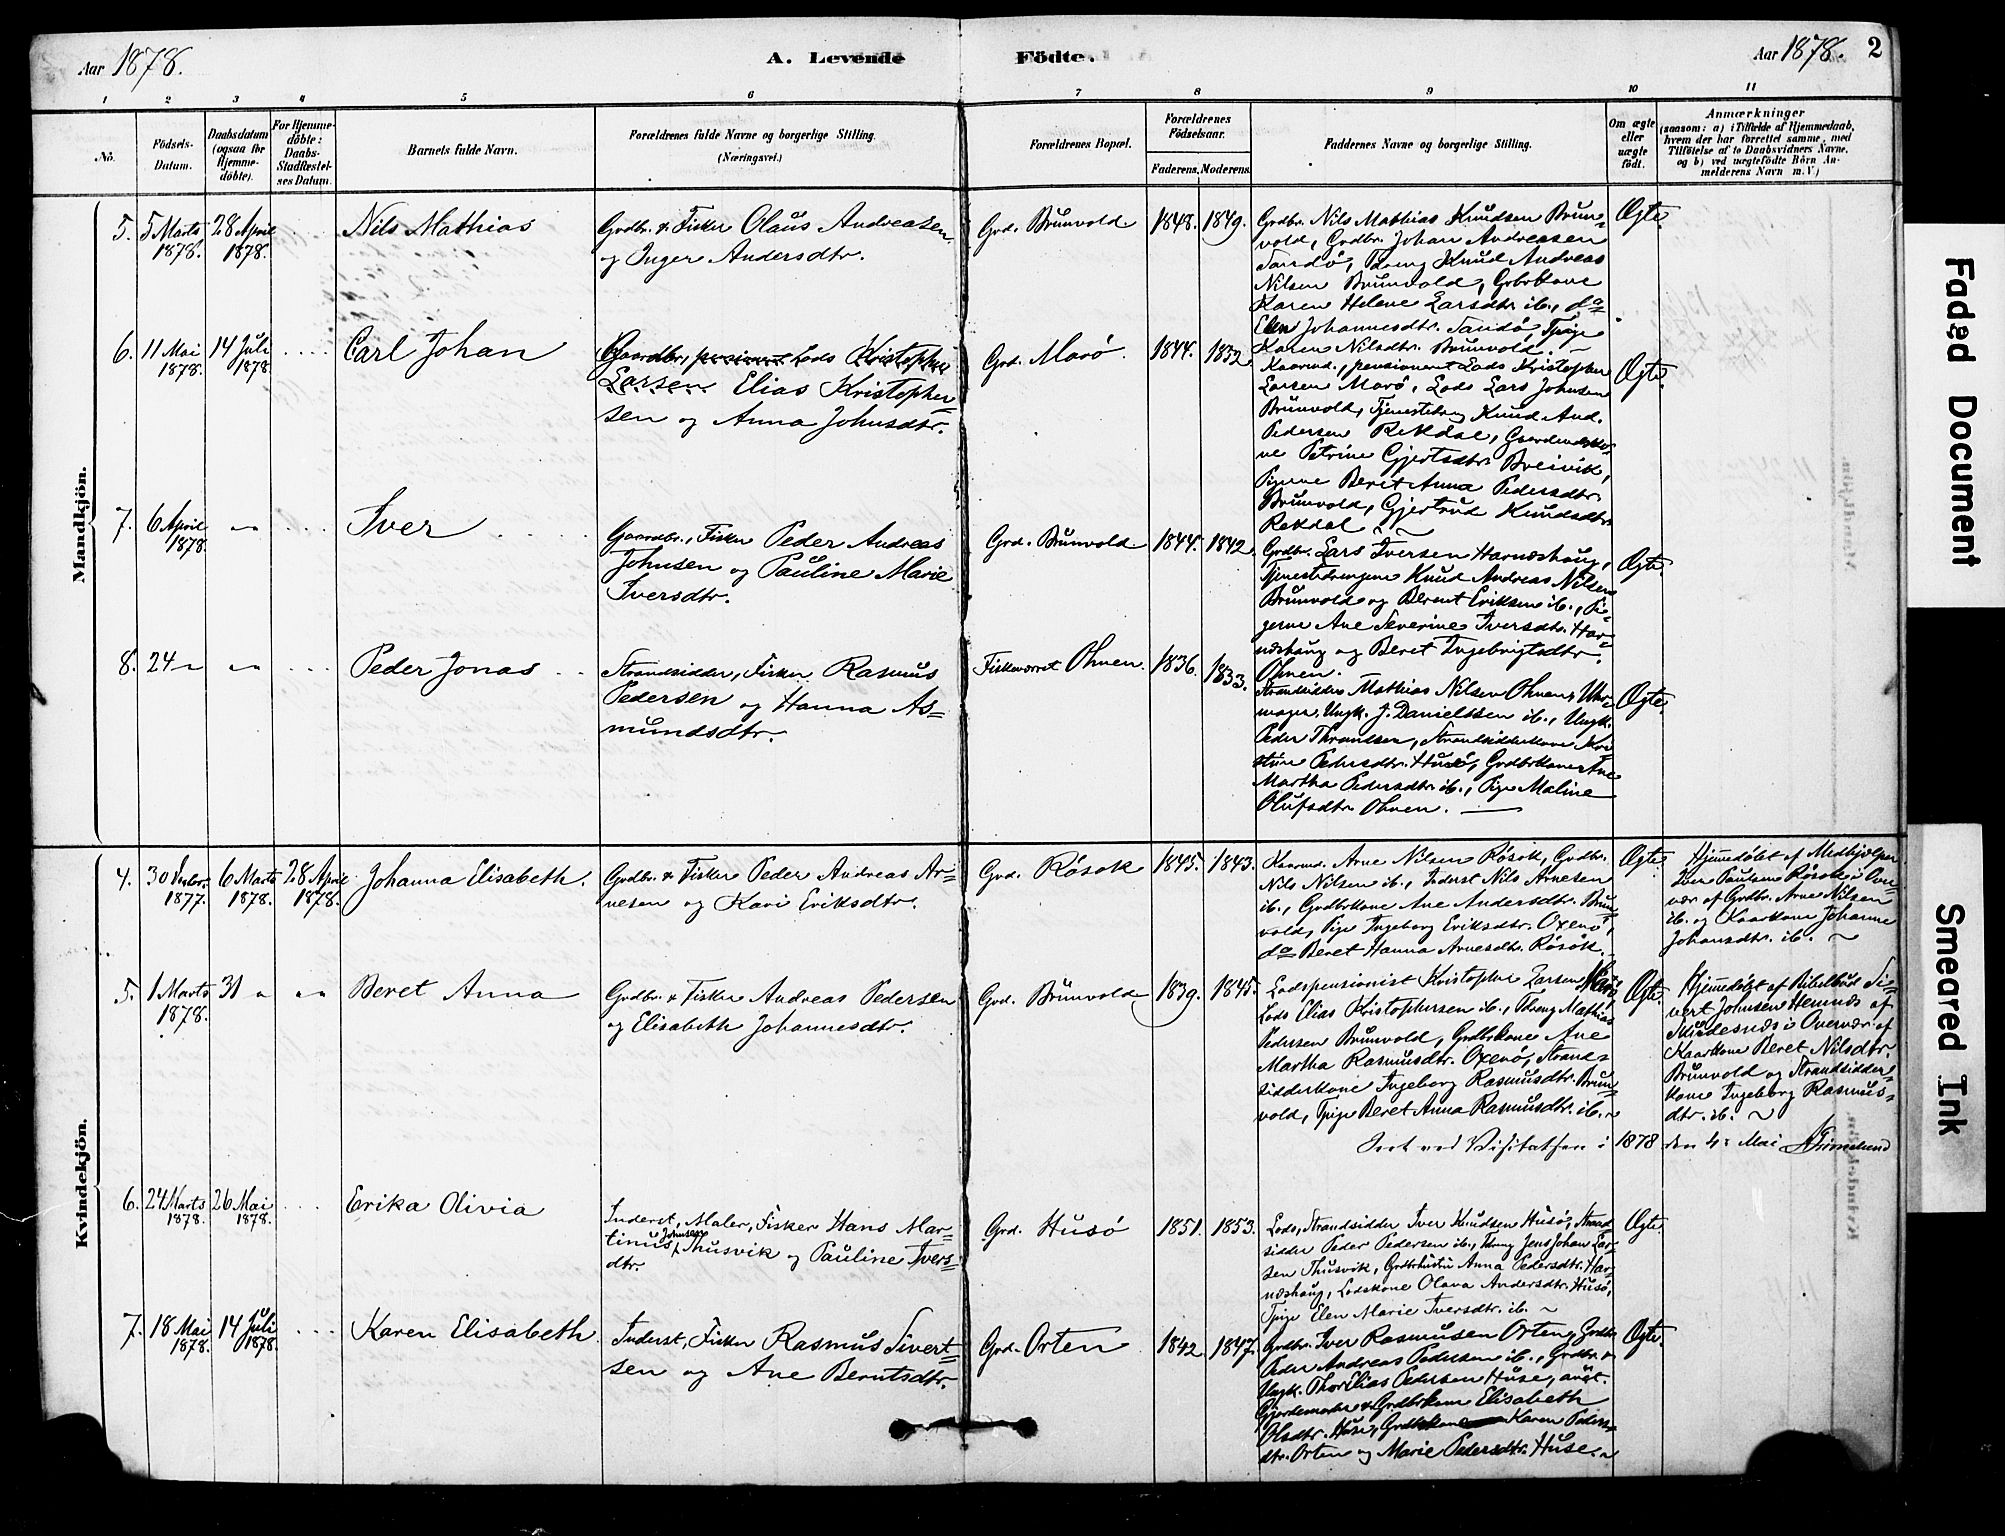 Aar 1878.
A. Levende
Födte.
Aar 1878.
2
1
2
3
4
5
6
7
8
9
10
11
No.
Födsels-
Datum.
Daabsdatum
(ogsaa for
Hjemme-
döbte).
For Hjemme-
döbte:
Daabs-
Stadfæstel-
ses Datum.
Barnets fulde Navn.
Forældrenes fulde Navne og borgerlige Stilling.
(Næringsvei.)
Forældrenes Bopæl.
Forældrenes
Födselsaar.
Faderens.
Moderens.
Faddernes Navne og borgerlige Stilling.
Om ægte
eller
uægte
födt.
Anmærkninger
(saasom: a) i Tilfælde af Hjemmedaab,
hvem der har forrettet samme, med
Tilföielse af to Daabsvidners Navne,
og b) ved uægtefödte Börn An-
melderens Navn m. V.)
Mandkjön.
5.
5 Marts
1878.
28 April
1878.
Nils Mathias
Grdbr. & Fisker Olaus Andreasen
og Inger Andersdtr.
Grd. Brunvold
1848.
1849.
Grdbr. Nils Mathias Knudsen Brun-
vold, Grdbr. Johan Andreasen
Sandö, Dreng Knud Andreas
Nilsen Brunvold, Grbrkone
Karen Helene Larsdtr. ib., do
Elen Johannesdtr. Sandö Pige
Karen Nilsdtr. Brunvold. -
Ægte.
6.
11 Mai
1878.
14 Juli
1878.
Carl Johan
Gaardbr., pensioneret Lods Kristopher
Larsen Elias Kristopher=
sen og Anna Johnsdtr.
Grd. Marö.
1844.
1832.
Kaarmd., pensioneret Lods Kristopher
Larsen Marö, Lods Lars Johnsen
Brunvold, Tjenestedreng Knud And.
Pedersen Rekdal,
ne Petrine Gjertsdtr. Breivik,
Pigerne Beret Anna Pedersdtr.
Brunvold, Gjertrud Knudsdtr.
Rekdal ~
Ægte.
7.
6 April
1878.
Iver
Gaardbr., Fisker Peder Andreas
Johnsen og Pauline Marie
Iversdtr.
Grd. Brunvold
1844.
1842.
Grdbr. Lars Iversen Harnæshaug,
Tjenestedrengene Knud Andreas Nilsen
Brunvold og Berent Eriksen ib., Pi-
gerne Ane Severine Iversdtr. Har-
næshaug og Beret Ingebrigtsdtr.
Ohnen.
Ægte.
8.
24 "
Peder Jonas
Strandsidder, Fisker Rasmus
Pedersen og Hanna As=
mundsdtr.
Fiskeværet Ohnen.
1836.
1833.
Strandsidder Mathias Nilsen Ohnen, Uhr-
mager, Ungk. J. Danielssen ib., Ungk.
Peder Thrandsen, Strandsidderkone Kri-
stine Pedersdtr. Husö, Grdbrkone Ane
Martha Pedersdtr. ib., Pige Maline
Olufsdtr. Ohnen.
Ægte.
Kvindekjön.
4.
30 Decbr.
1877.
6 Marts
1878.
28 April
1878.
Johanna Elisabeth.
Grdbr. & Fisker Peder Andreas Ar=
nesen og Kari Eriksdtr.
Grd. Rösok
1845.
1843.
Kaarmd. Arne Nilsen Rösok, Grdbr.
Nils Nilsen ib., Inderst Nils Arnesen
ib., Grdbrkone Ane Andersdtr. Brun-
vold, Pige Ingeborg Eriksdtr. Oxenö,
do Beret Hanna Arnesdtr. Rösok.
Ægte.
Hjemmedöbt af Medhjælper
Iver Paulsen Rösok i Over-
vær af Grdbr. Arne Nilsen
ib. og Kaarkone Johanne
Johansdtr. ib. ~
5.
1 Marts
1878.
31 "
Beret Anna
Grdbr. & Fisker Andreas Pedersen
og Elisabeth Johannesdtr.
Grd. Brunvold
1839.
1845.
Lodspensionist Kristopher Larsen Marö,
Lods Elias Kristophersen ib., Dreng Mathias
Pedersen Brunvold, Grdbrkone Ane
Martha Rasmusdtr. Oxenö, Strand=
sidderkone Ingeborg Rasmusdtr. Brun=
vold, Pige Beret Anna Rasmusdtr. ib. ~
Ægte.
Hjemmedöbt af Bibelbud Si-
vert Johnsen Hemnes af
i Overvær af
Kaarkone Beret Nilsdtr.
Brunvold og Strandsidder=
kone Ingeborg Rasmus=
dtr. ib. ~
Seet ved Visitatsen i 1878 den 4. Mai Grimelund
6.
24 Marts
1878.
26 Mai
1878.
Erika Olivia
Inderst, Maler, Fisker Hans Mar=
tinus Johnsen Thusvik og Pauline Ivers=
dtr.
Grd. Husö
1851.
1853.
Lods, Strandsidder Iver Knudsen Husö, Strand-
sidder Peder Pedersen ib., Dreng Jens Johan Lar-
sen Thusvik, Anna Pedersdtr. Har-
næshaug, Lodskone Olava Andersdtr. Husö,
Pige Elen Marie Iversdtr. ib. ~
Ægte.
7.
18 Mai
1878.
14 Juli
1878.
Karen Elisabeth
Inderst, Fisker Rasmus Sivert=
sen og Ane Berntsdtr.
Grd. Orten
1842
1847.
Grdbr. Iver Rasmusen Orten, Grdbr.
Peder Andreas Pedersen ib., Grdbr. &
Ungk. Thor Elias Pedersen Huse,
Gjordemoder & Grdbrkone Elisabeth
Olsdtr. Huse, Grdbrkone Karen Peders=
dtr. Orten og Marie Pedersdtr. Huse.
Ægte.
Faded Document
Smeared Ink